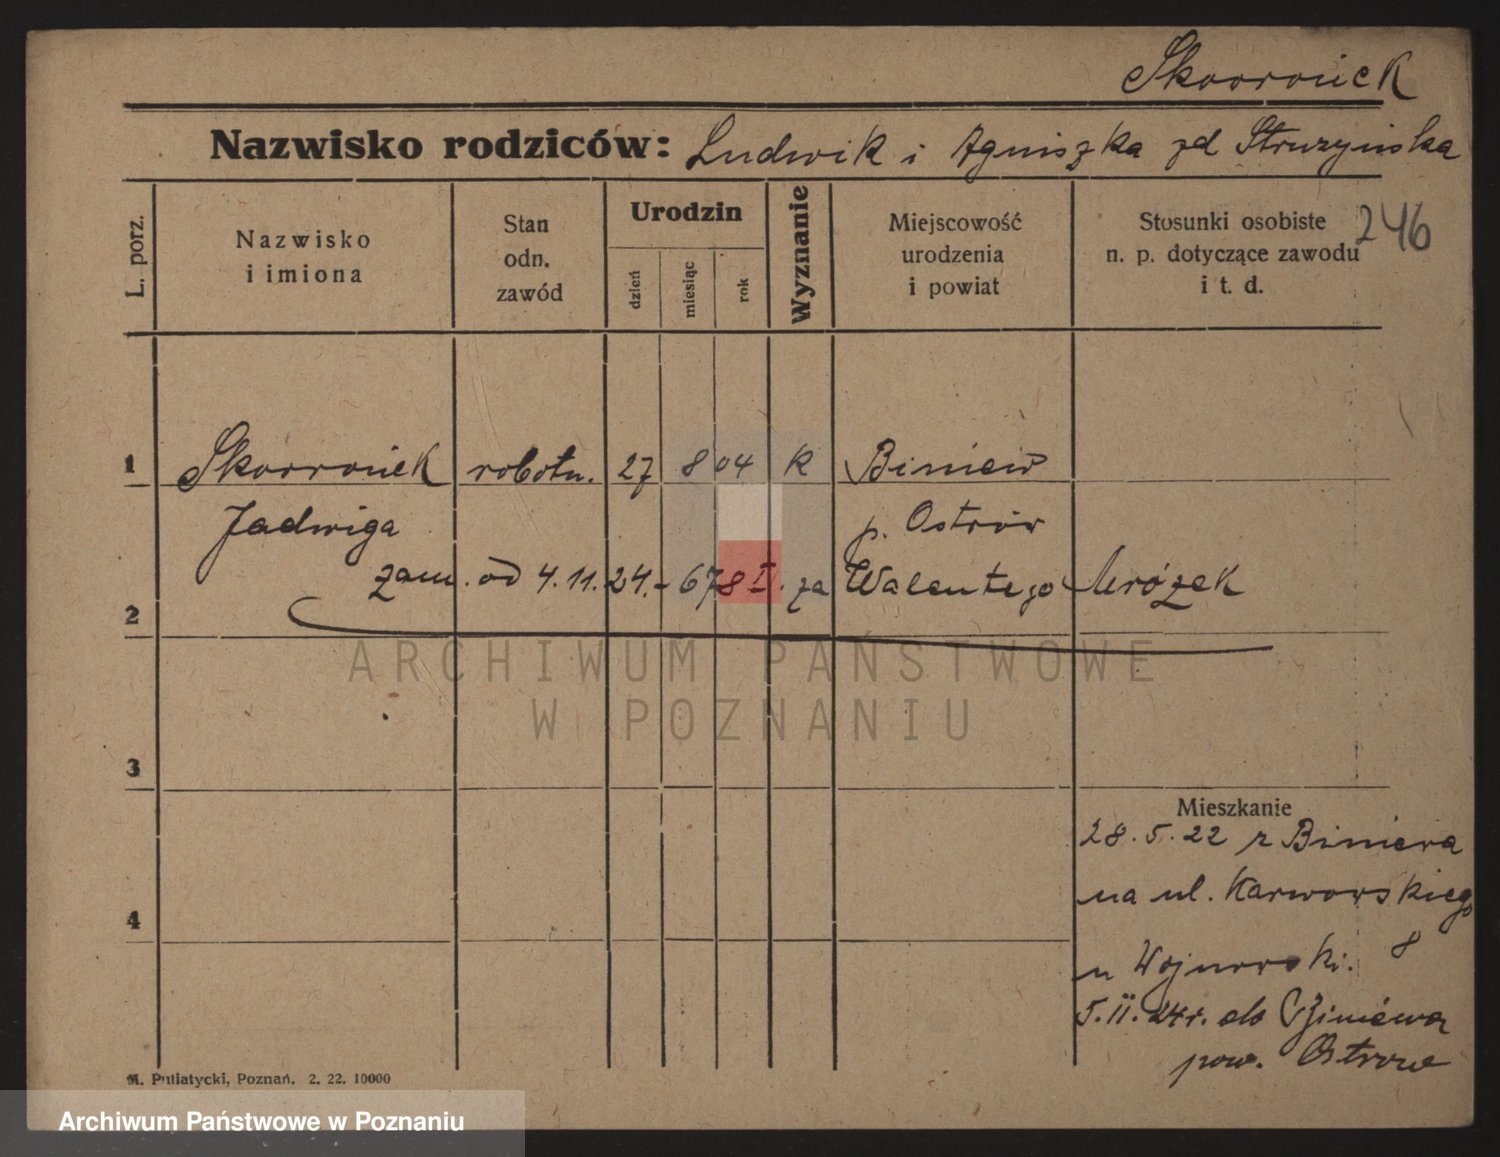 Skowronek
Nazwisko rodziców: Ludwik i Agniszka zd Struzyńska
246
L. porz.
Nazwisko
i imiona
Stan
odn.
zawód
Urodzin
dzień
miesiąc
rok
Wyznanie
Miejscowość
urodzenia
i powiat
Stosunki osobiste
n. p. dotyczące zawodu
i t. d.
1 Skowronek robotn. 27 8 04 K Biniew
Jadwiga p. Ostrów
zam. od 4.11.24.- 678 I. za Walentego Mrózek
2
ARCHIWUM PAŃSTWOWE
W POZNANIU
3
Mieszkanie
28.5.22 z Biniewa
4
na ul. Karwowskiego
8
u
5.II.24r. do Biniewa
pow. Ostrow
M. Putiatycki, Poznań. 2. 22. 10000
Archiwum Państwowe w Poznaniu